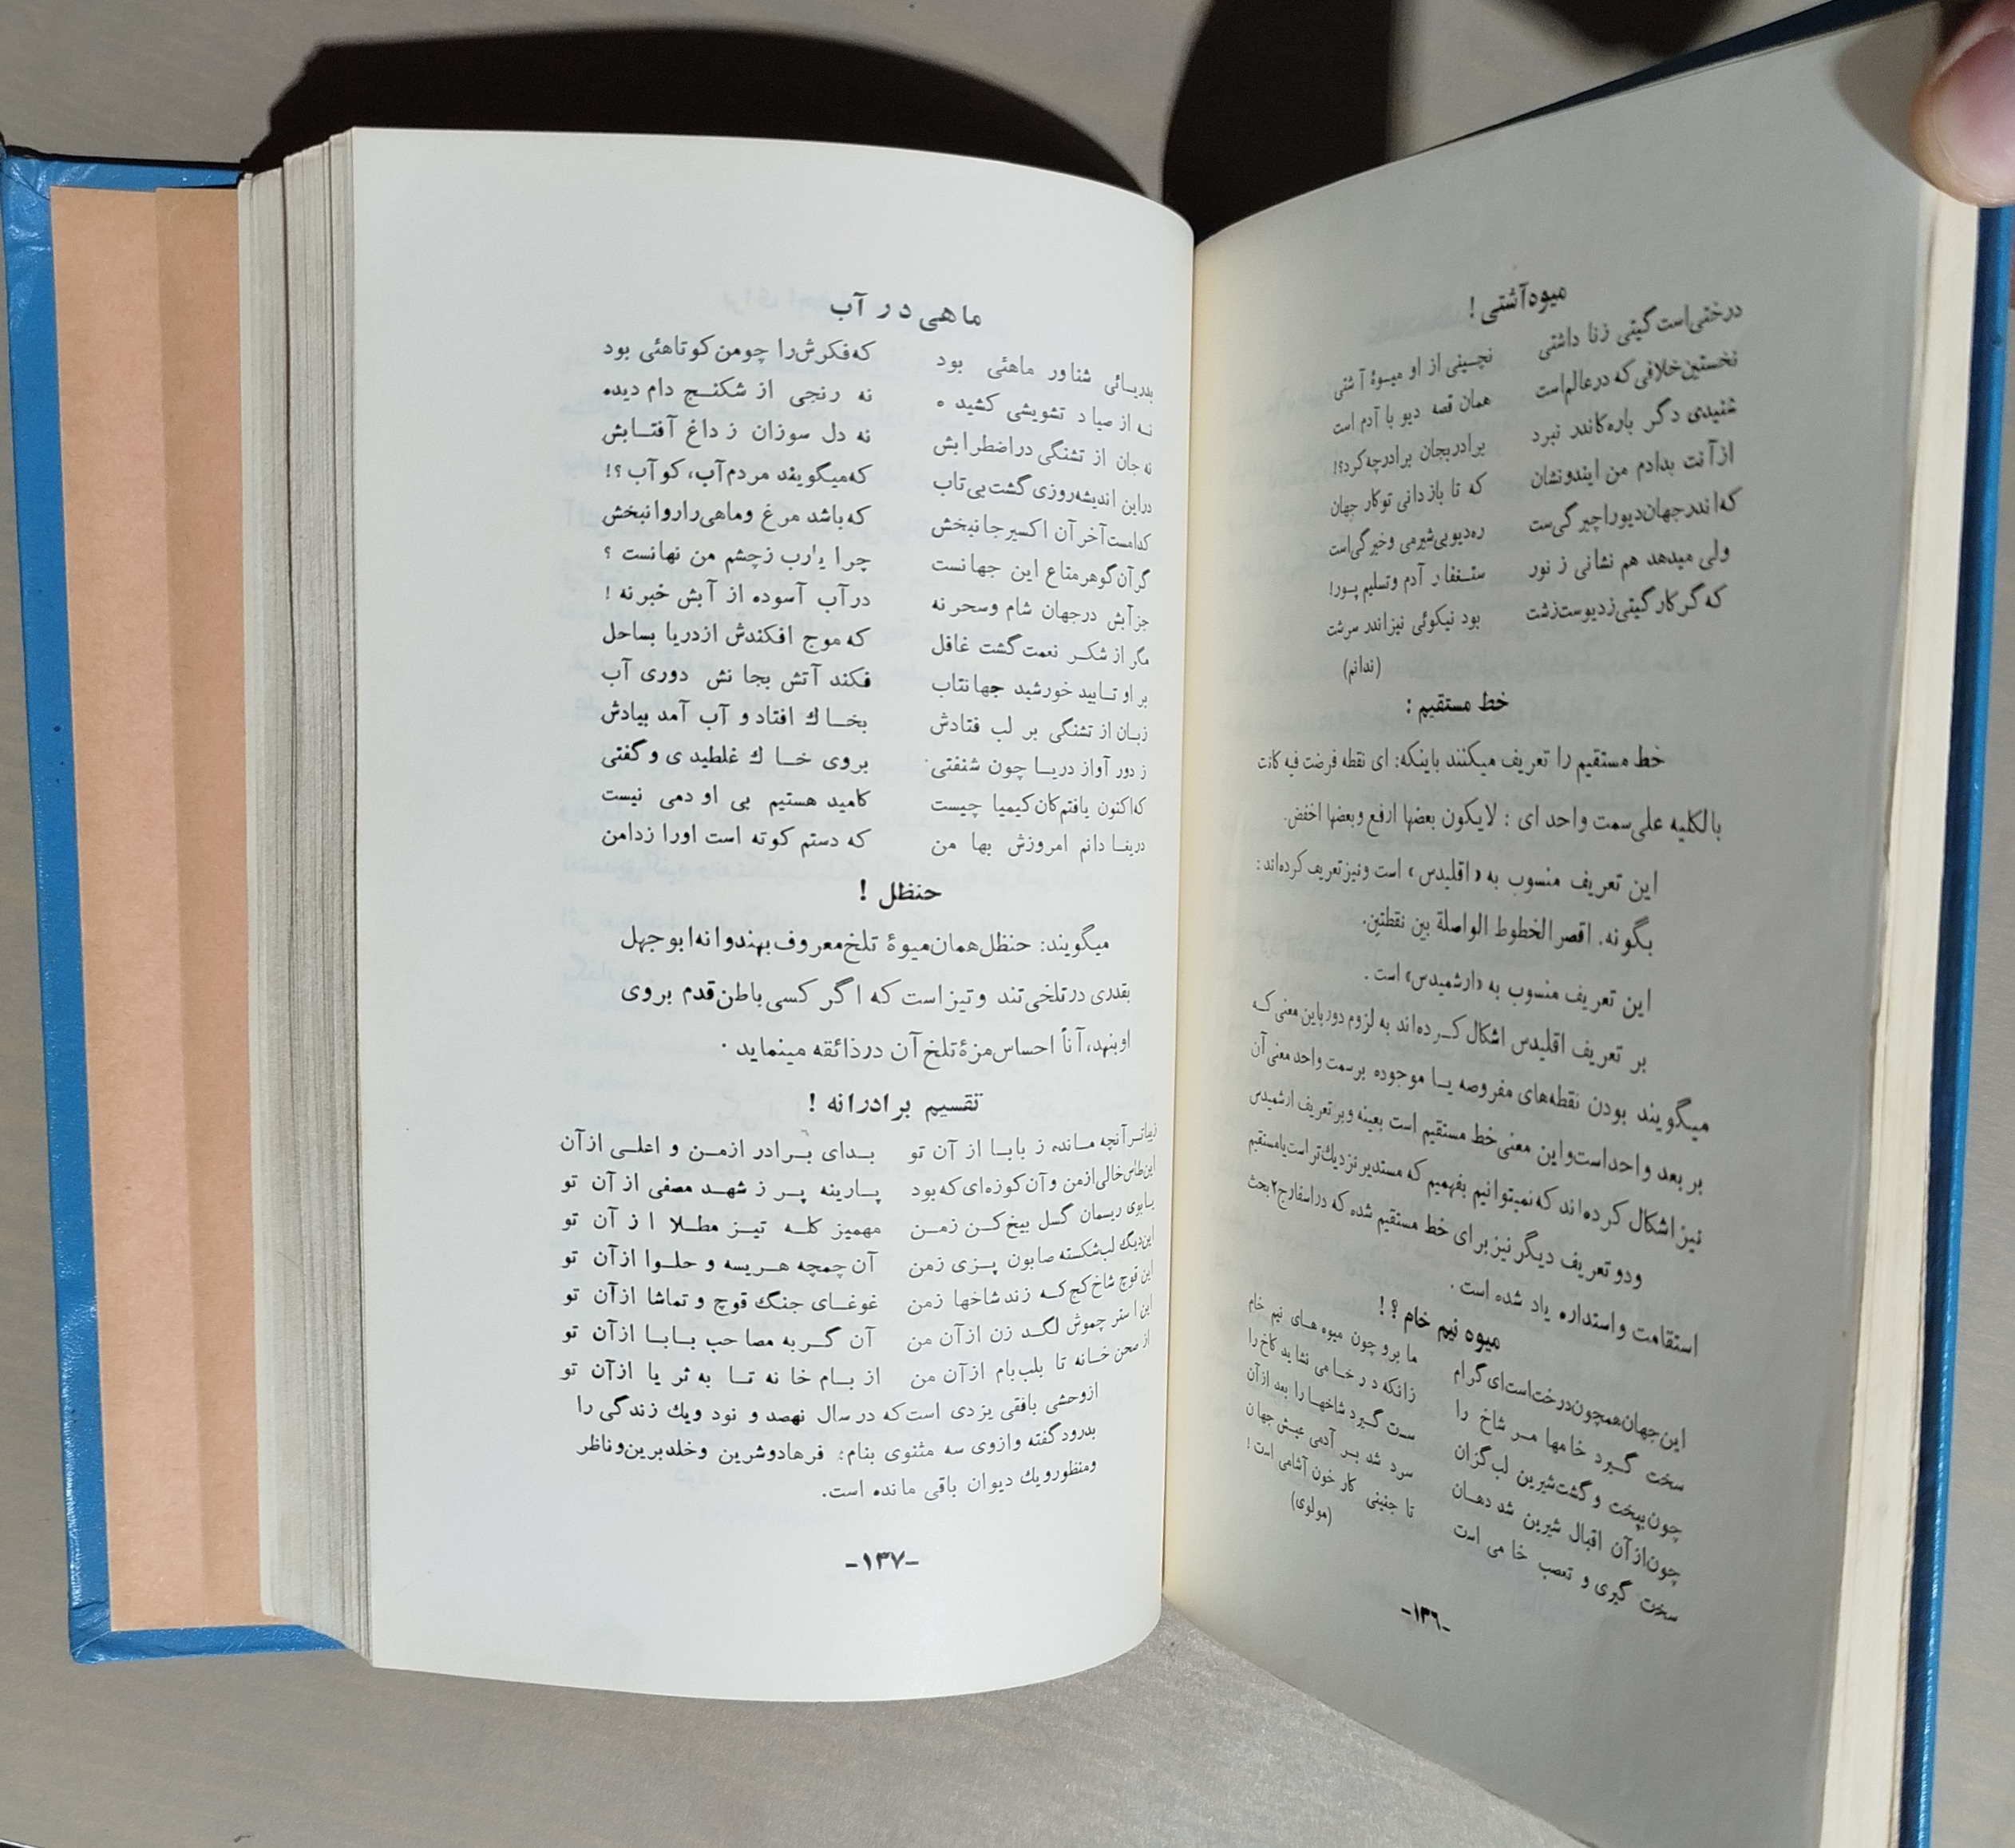 میوه آشتی !
درختی است گیتی ز نا داشتی نچینی از او میوهٔ آشتی
نخستین خلافی که در عالم است همان قصه دیو با آدم است
شنیدی دگر باره کاندر نبرد برادر بجان برادر چه کرد؟!
از آنت بدادم من ایندو نشان که تا بازدانی تو کار جهان
که اندر جهان دیو را چیرگی ست ره دیو بی شرمی و خیرگی است
ولی میدهد هم نشانی ز نور ستغفار آدم و تسلیم پور!
که گر کار گیتی ز دیوست زشت بود نیکوئی نیز اندر سرشت
(ندانم)
خط مستقیم :
خط مستقیم را تعریف میکنند باینکه: ای نقطه فرضت فیه کانت
بالکلیه علی سمت واحد ای : لایکون بعضها ارفع و بعضها اخفض.
این تعریف منسوب به «اقلیدس» است و نیز تعریف کرده‌اند :
بگونه. اقصر الخطوط الواصلة بین نقطتین.
این تعریف منسوب به «ارشمیدس» است .
بر تعریف اقلیدس اشکال کرده‌اند به لزوم دور باین معنی که
میگویند بودن نقطه‌های مفروصه یا موجوده بر سمت واحد معنی آن
بر بعد واحد است و این معنی خط مستقیم است بعینه و بر تعریف ارشمیدس
نیز اشکال کرده‌اند که نمیتوانیم بفهمیم که مستدیر نزدیك‌تر است یا مستقیم
و دو تعریف دیگر نیز برای خط مستقیم شده که در اسفار ج ۲ بحث
استقامت و استداره یاد شده است .
میوه نیم خام ؟ !
این جهان همچون درخت است ای گرام ما برو چون میوه های نیم خام
سخت گیرد خامها مر شاخ را زانکه در خامی نشاید کاخ را
چون بپخت و گشت شیرین لب گزان سست گیرد شاخها را بعد از آن
چون از آن اقبال شیرین شد دهان سرد شد بر آدمی عیش جهان
سخت گیری و تعصب خامی است تا جنینی کار خون آشامی است !
(مولوی)
-۱۳۶-
ماهی در آب
بدریائی شناور ماهئی بود که فکرش را چو من کوتاهئی بود
نه از صیاد تشویشی کشیده نه رنجی از شکنج دام دیده
نه جان از تشنگی در اضطرابش نه دل سوزان ز داغ آفتابش
در این اندیشه روزی گشت بی تاب که میگویند مردم آب، کو آب ؟!
کدامست آخر آن اکسیر جانبخش که باشد مرغ و ماهی را روانبخش
گر آن گوهر متاع این جهانست چرا یارب ز چشم من نهانست ؟
جز آبش در جهان شام و سحر نه در آب آسوده از آبش خبر نه !
مگر از شکر نعمت گشت غافل که موج افکندش از دریا بساحل
بر او تابید خورشید جهانتاب فکند آتش بجانش دوری آب
زبان از تشنگی بر لب فتادش بخاك افتاد و آب آمد بیادش
ز دور آواز دریا چون شنفتی بروی خاك غلطیدی و گفتی
که اکنون یافتم کان کیمیا چیست کامید هستیم بی او دمی نیست
دریغا دانم امروزش بها من که دستم کوته است اورا ز دامن
حنظل !
میگویند: حنظل همان میوهٔ تلخ معروف بهندوانه ابوجهل
بقدری در تلخی تند و تیز است که اگر کسی باطن قدم بروی
او بنهد، آناً احساس مزهٔ تلخ آن در ذائقه مینماید .
تقسیم برادرانه !
زیباتر آنچه مانده ز بابا از آن تو بدای برادر از من و اعلی از آن
این طاس خالی از من و آن کوزه‌ای که بود پارینه پر ز شهد مصفی از آن تو
یابوی ریسمان گسل بیخ کن ز من مهمیز کله تیز مطلا از آن تو
این دیگ لب شکسته صابون پزی ز من آن چمچه هریسه و حلوا از آن تو
این قوچ شاخ کج که زند شاخها ز من غوغای جنگ قوچ و تماشا از آن تو
این استر چموش لگد زن از آن من آن گربه مصاحب بابا از آن تو
از صحن خانه تا بلب بام از آن من از بام خانه تا به ثریا از آن تو
از وحشی بافقی یزدی است که در سال نهصد و نود و یك زندگی را
بدرود گفته و از وی سه مثنوی بنام: فرهاد و شیرین و خلد برین و ناظر
و منظور و یك دیوان باقی مانده است.
-۱۳۷-